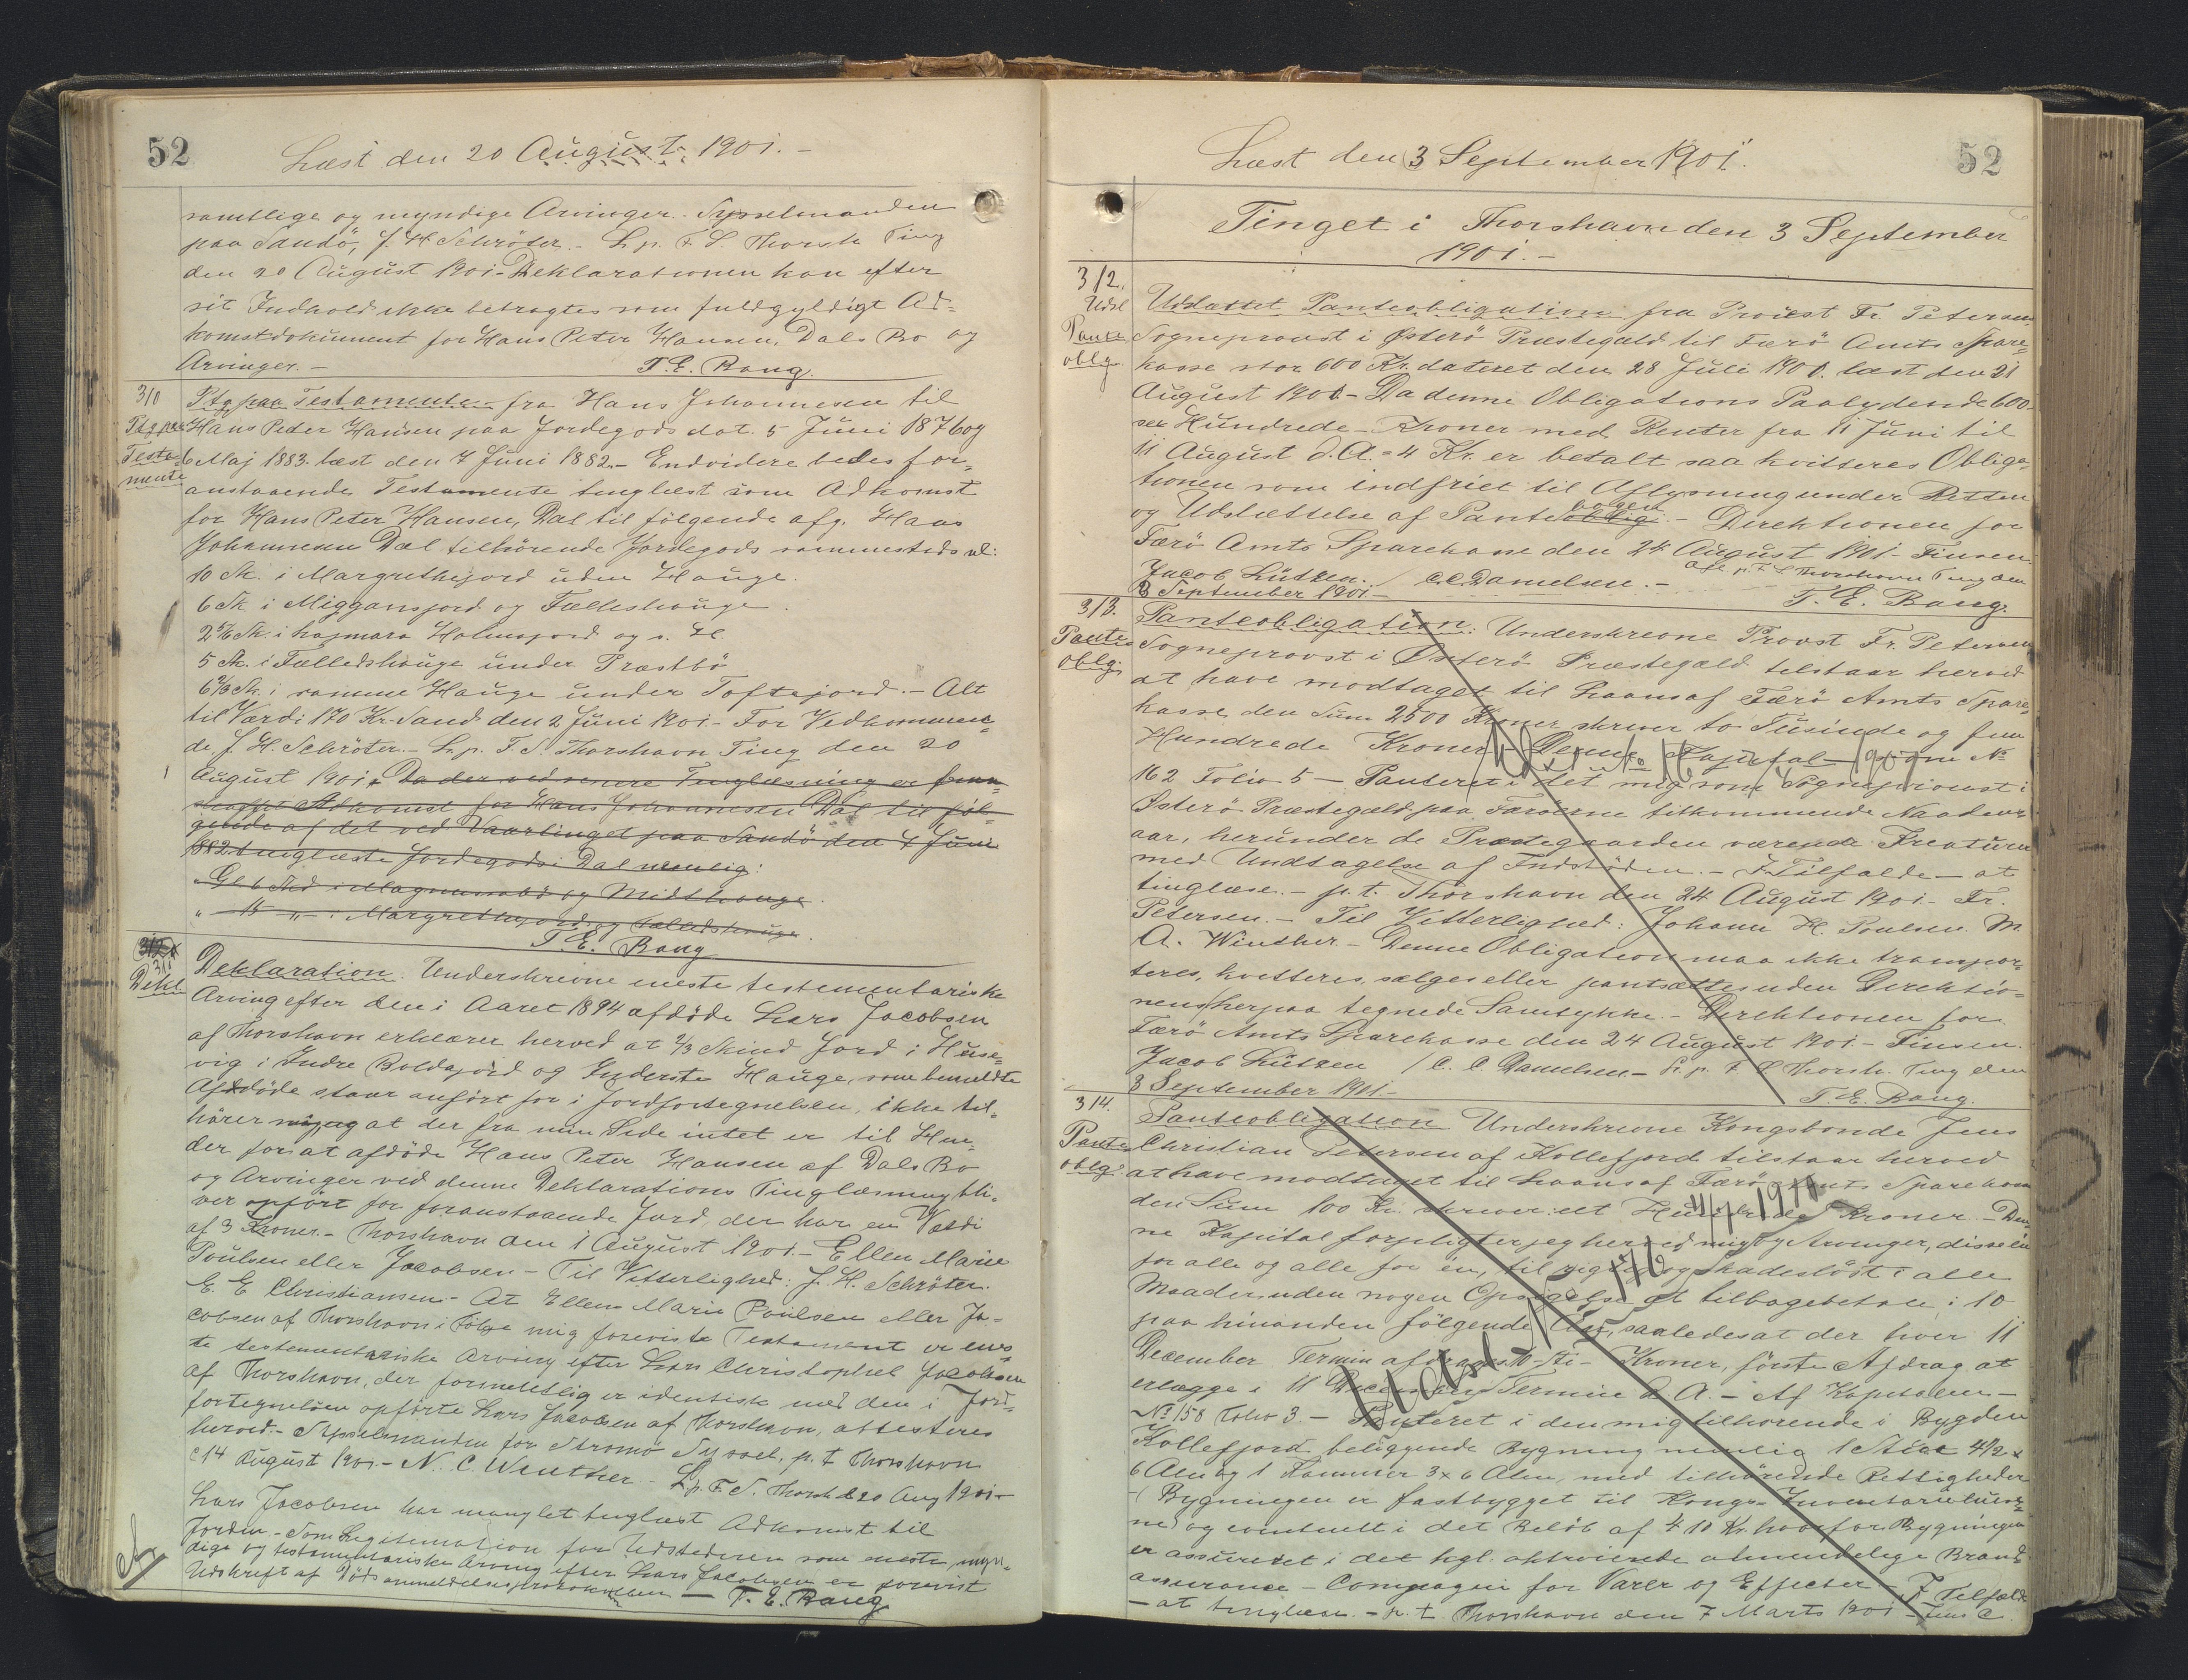 52
Læst den 20 August 1901.-
samtlige og myndige Arvinger. Sysselmanden
paa Sandö, J. H. Schröter. - L. p. F. S. Thorsh. Ting
den 20 August 1901 - Deklarationen kan efter
sit Indhold ikke betragtes som fuldgyldigt Ad=
komstdokument for Hans Peter Hansen, Dals Bo og
Arvinger. -
T. E. Bang.
310
Ptg. paa
Testa
mente
Ptg paa Testamente fra Hans Johannesen til
Hans Peder Hansen paa Jordegods dat. 5 Juni 1876 og
6 Maj 1883. læst den 7 Juni 1882. - Endvidere bedes for=
anstaaende Testamente tinglæst som Adkomst
for Hans Peter Hansen, Dal til fölgende afg. Hans
Johannesen Dal tilhörende Jordegods sammesteds nl:
10 Sk. i Margrethejord uden Hauge.
6 Sk i Miggansjord og Fælleshauge.
2 5/6 Sk. i Holmsjord og s. H.
5 Sk. i Fælledshauge under Præstbö
6 2/3 Sk. i samme Hauge under Toftejord. - Alt
til Værdi 170 Kr. Sand den 2 Juni 1901 - For Vedkommen=
de, J. H. Schröter. - L. p. F. S. Thorshavn Ting den 20
August 1901. Da der ved senere Tinglæsning er frem=
skaffet Adkomst for Hans Johannesen Dal til föl=
gende af det ved Vaartinget paa Sandö den 7 Juni
1882 tinglæste Jordegods i Dal nemlig:
Gl. 6 Skd i og Midthauge.
" 15 " - i Margrethejord og Fælledshauge.
T. E. Bang
311
Dekl.
Deklaration. Underskrevne eneste testementariske
Arving efter den i Aaret 1894 afdöde Lars Jacobsen
af Thorshavn erklærer herved at 2/3 Skind Jord i Huse=
vig i Indre Boldajord og Inderste Hauge, som bemeldte
Afdöde staar anfört for i Jordfortegnelsen, ikke til=
hörer mig og at der fra min Side intet er til Hin=
der for at afdöde Hans Peter Hansen af Dals Bo
og Arvinger ved denne Deklarations Tinglæsning bli=
ver opfört for foranstaaende Jord, der har en Værdi
af 3 Kroner. - Thorshavn den 1 August 1901. - Ellen Marie
Poulsen eller Jacobsen - Til Vitterlighed: J. H. Schröter.
E. E Christiansen - At Ellen Marie Poulsen eller Ja=
cobsen af Thorshavn i Fölge mig foreviste Testament er enes=
te testementariske Arving efter Lars Christophel Jacobsen
af Thorshavn, der formentlig er identisk med den i Jord=
fortegnelsen opförte Lars Jacobsen af Thorshavn, attesteres
herved. - Sysselmanden for Strömö Syssel, p. t Thorshavn
d 14 August 1901 - N. C. Winther. - L. p. F. S. Thorsh. d 20 Aug 1901 -
Lars Jacobsen har manglet tinglæst Adkomst til
Jorden. - Som Legitimation for Udstederen som eneste myn=
dige og testamentariske Arving efter Lars Jacobsen er forevist
Udskrift af Dödsanmeldelsesprotokollen - T. E. Bang
Læst den 3 September 1901.
52
Tinget i Thorshavn den 3 September
1901. -
312.
Udsl
Pante
oblg
Udslettet Panteobligation fra Provst Fr. Petersen
Sogneprovst i Österö Præstegæld til Færö Amts Spare=
kasse stor 600 Kr. dateret den 28 Juli 1900. læst den 21
August 1900 - Da denne Obligations Paalydende 600
sex Hundrede - Kroner med Renter fra 11 Juni til
11 August d. A. = 4 Kr. er betalt saa kvitteres Obliga=
tionen som indfriet til Aflysning under Retten
og Udslettelse af Pantebogen. - Direktionen for
Færö Amts Sparekasse den 24 August 1901 - Finsen.
Jacob Lützen. / C. C. Danielsen. - Afl. p. F. S Thorshavn Ting den
3 September 1901 -
T. E. Bang.
313.
Pante
oblg.
Panteobligation. Underskrevne Provst Fr. Petersen
Sogneprovst i Österö Præstegæld tilstaar herved
at have modtaget til Laans af Færö Amts Spare=
kasse den Sum 2500 Kroner skriver to Tusinde og fem
Hundrede Kroner - Denne Kapital No
162 Folio 5 - Panteret i det mig som Sogneprovst i
Österö Præstegæld paa Færöerne tilkommende Naadens
aar, herunder de Præstegaarden værende Kreaturer
med Undtagelse af Indstöden. - F. Tilfælde - at
tinglæse. - p. t. Thorshavn den 24 August 1901 - Fr.
Petersen. - Til Vitterlighed: Johann H. Poulsen. M.
A. Winther. - Denne Obligation maa ikke transpor=
teres, kvitteres, sælges eller pantsættes uden Direktio=
nens herpaa tegnede Samtykke. - Direktionen for
Færö Amts Sparekasse den 24 August 1901. - Finsen.
Jacob Lützen / C. C Danielsen - L. p. F. S Thorsh. Ting den
3 September 1901 -
T. E. Bang.
314.
Pante
oblg.
Panteobligation Underskrevne Kongsbonde Jens
Christian Petersen af Kollefjord tilstaar herved
at have modtaget til Laans af Færö Amts Sparekasse
den Sum 100 Kr. skriver et Hundrede Kroner. - Den
ne Kapital forpligter jeg herved mig og Arvinger, disse én
for alle og alle for én, til rigtig og skadeslöst i alle
Maader uden nogen Opsigelse at tilbagebetale i 10
paa hinanden fölgende Aar, saaledes at der hver 11
December Termin afdrages 10 - ti - Kroner, förste Afdrag at
erlægge i 11 December Termin d. A. - Af Kapitalen -
No 158 Folio 3. - Panteret i den mig tilhörende i Bygden
Kollefjord beliggende Bygning nemlig 1 Stue 4 1/2 x
6 Alen og 1 Kammer 3 x 6 Alen, med tilhörende Rettigheder
- (Bygningen er fastbygget til Kongs-
ne) og eventuelt i det Belöb af 410 Kr. hvorfor Bygningen
er assureret i det kgl. oktroierede almindelige Brand
assurance - Compagni for Varer og Effecter - F Tilfælde
- at tinglæse. - p. t. Thorshavn den 7 Marts 1901 - Jens C.